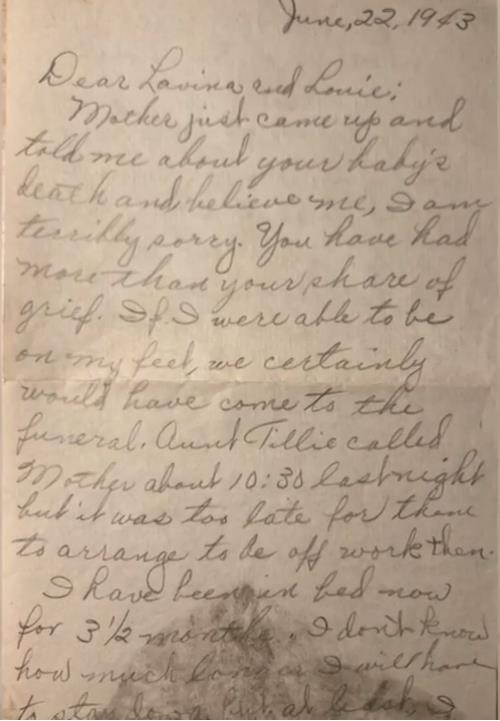 June, 22, 1943
Dear Lavina and Louie:
Mother just came up and
told me about your baby's
death and believe me, I am
terribly sorry. You have had
more than your share of
grief. If I were able to be
on my feet, we certainly
would have come to the
funeral. Aunt Tillie called
Mother about 10:30 last night
but it was too late for them
to arrange to be off work then.
I have been in bed now
for 3 1/2 months. I don't know
how much longer I will have
to stay down but at least, I